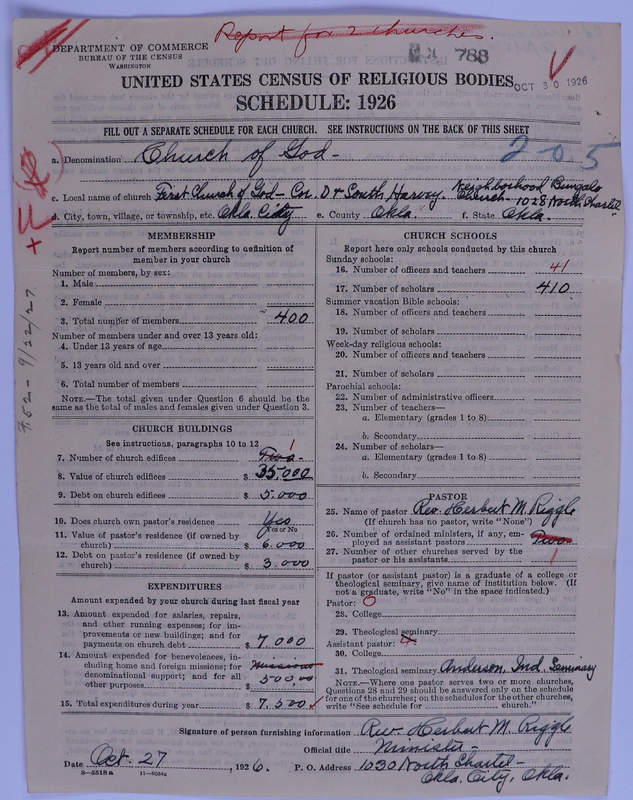 Report for 2 churches.
DEPARTMENT OF COMMERCE
BUREAU OF THE CENSUS
WASHINGTON
788
OCT 30 1926
UNITED STATES CENSUS OF RELIGIOUS BODIES
SCHEDULE: 1926
FILL OUT A SEPARATE SCHEDULE FOR EACH CHURCH. SEE INSTRUCTIONS ON THE BACK OF THIS SHEET
205
a. Denomination Church of God-
c. Local name of church First Church of God - Cor. D & South Harvey. Neighborhood Bungalo Church - 1028 North Chartel
d. City, town, village, or township, etc. Okla. City e. County Okla. f. State Okla.
7.52 - 9/22/27
MEMBERSHIP
Report number of members according to definition of
member in your church
Number of members, by sex:
1. Male
2. Female
3. Total number of members 400
Number of members under and over 13 years old:
4. Under 13 years of age
5. 13 years old and over
6. Total number of members
NOTE.—The total given under Question 6 should be the
same as the total of males and females given under Question 3.
CHURCH BUILDINGS
See instructions, paragraphs 10 to 12
7. Number of church edifices Two - 1
8. Value of church edifices $ 35,000
9. Debt on church edifices $ 5,000
10. Does church own pastor's residence Yes
Yes or No
11. Value of pastor's residence (if owned by
church) $ 6,000
12. Debt on pastor's residence (if owned by
church) $ 3,000
EXPENDITURES
Amount expended by your church during last fiscal year
13. Amount expended for salaries, repairs,
and other running expenses; for im-
provements or new buildings; and for
payments on church debt $ 7,000
14. Amount expended for benevolences, in-
cluding home and foreign missions; for
denominational support; and for all
other purposes $ 500 00
15. Total expenditures during year $ 7,500
CHURCH SCHOOLS
Report here only schools conducted by this church
Sunday schools:
16. Number of officers and teachers 41
17. Number of scholars 410
Summer vacation Bible schools:
18. Number of officers and teachers
19. Number of scholars
Week-day religious schools:
20. Number of officers and teachers
21. Number of scholars
Parochial schools:
22. Number of administrative officers
23. Number of teachers—
a. Elementary (grades 1 to 8)
b. Secondary
24. Number of scholars—
a. Elementary (grades 1 to 8)
b. Secondary
PASTOR
25. Name of pastor Rev. Herbert M. Riggle
(If church has no pastor, write "None")
26. Number of ordained ministers, if any, em-
ployed as assistant pastors Two
27. Number of other churches served by the
pastor or his assistants 1
If pastor (or assistant pastor) is a graduate of a college or
theological seminary, give name of institution below. (If
not a graduate, write "No" in the space indicated.)
Pastor: O
28. College
29. Theological seminary
Assistant pastor:
30. College
31. Theological seminary Anderson, Ind. Seminary
NOTE.—Where one pastor serves two or more churches,
Questions 28 and 29 should be answered only on the schedule
for one of the churches; on the schedules for the other churches,
write "See schedule for church."
Signature of person furnishing information Rev. Herbert M. Riggle
Official title Minister-
Date Oct. 27, 1926. P. O. Address 1030 North Chartel-
Okla. City, Okla.
8-5518a 11-9034g